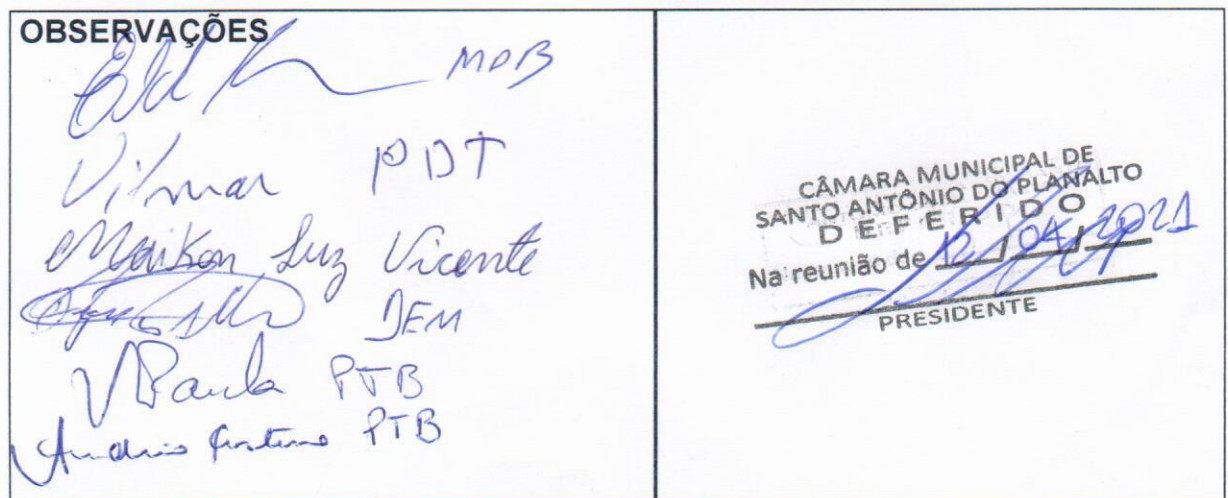 OBSERVAÇÕES
MDB
Vilmar PDT
Maikon Luz Vicente
DEM
VPaula PTB
PTB
CÂMARA MUNICIPAL DE
SANTO ANTÔNIO DO PLANALTO
DEFERIDO
Na reunião de 12 / 04 / 2021
PRESIDENTE